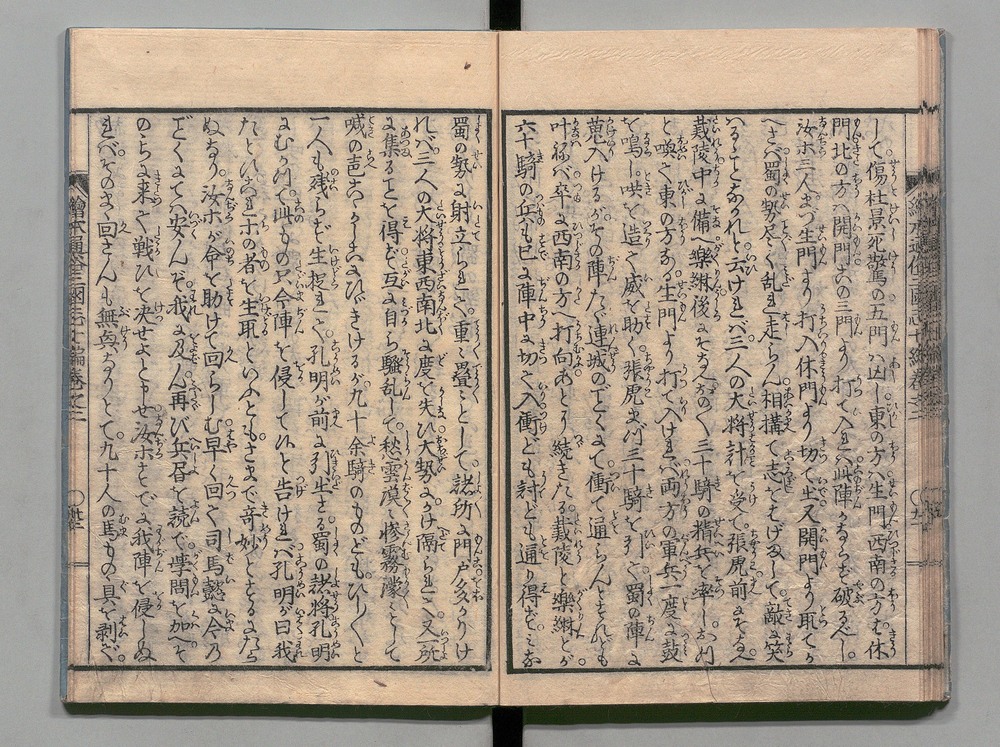 して傷杜景死驚の五門ハ凶し東の方ハ生門西南の方ハ休
門北の方ハ開門此の三門より打て入れバ此陣やぶるべし
汝ホ三人まづ生門より打入休門より切て出又開門より取てか
へさバ蜀の勢尽く乱れ走らん相搆て志をはげまして敵に笑
はるゝことなかれと云けれバ三人の大将計を受て張虎前にそなへ
戴陵中に備へ樂綝後にそなへて各〻三十騎の精兵を率し
と喚き東の方なる生門より打て入けれバ両方の軍兵一度に鼓
を鳴し吶を造て威を助く張虎まづ三十騎を引て蜀の陣に
蒐入けるがその陣たゞ連城のごとくにて衝て通らんとすれども
叶はねバ卒に西南の方へ打向あとより続きたる戴陵と樂綝とが
六十騎の兵も已に陣中に切て入衝ども討ども通り得ずミな
蜀の勢に射立られて重〻畳〻として諸所に門戸多かりけ
れバ三人の大将東西南北に度を失ひ大勢にかけ隔られて又一所
に集ることを得ず互に自ら騒乱して愁雲漠〻惨霧濛〻として
喊の声のミしきりにひゞきけるが九十余騎のものどもひし〳〵と
一人も残らず生捉れて孔明が前に引出さる蜀の諸将孔明
にむかつて此もの只今陣を侵して候と告けれバ孔明が曰我
たとひ汝ホの者を生取といふともさまで奇妙とするにたら
ぬなり汝ホが命を助けて回らしむ早く回て司馬懿に今乃
ごとくにてハ安んぞ我に及ん再び兵書を読で学問を加へそ
のちに来て戦ひを決せよと申せ汝ホすでに我陣を侵しぬ
れバそのまゝ回さんも無興なりとて九十人の馬もの具を剥ぎ
繪本通俗三國志十編卷之二